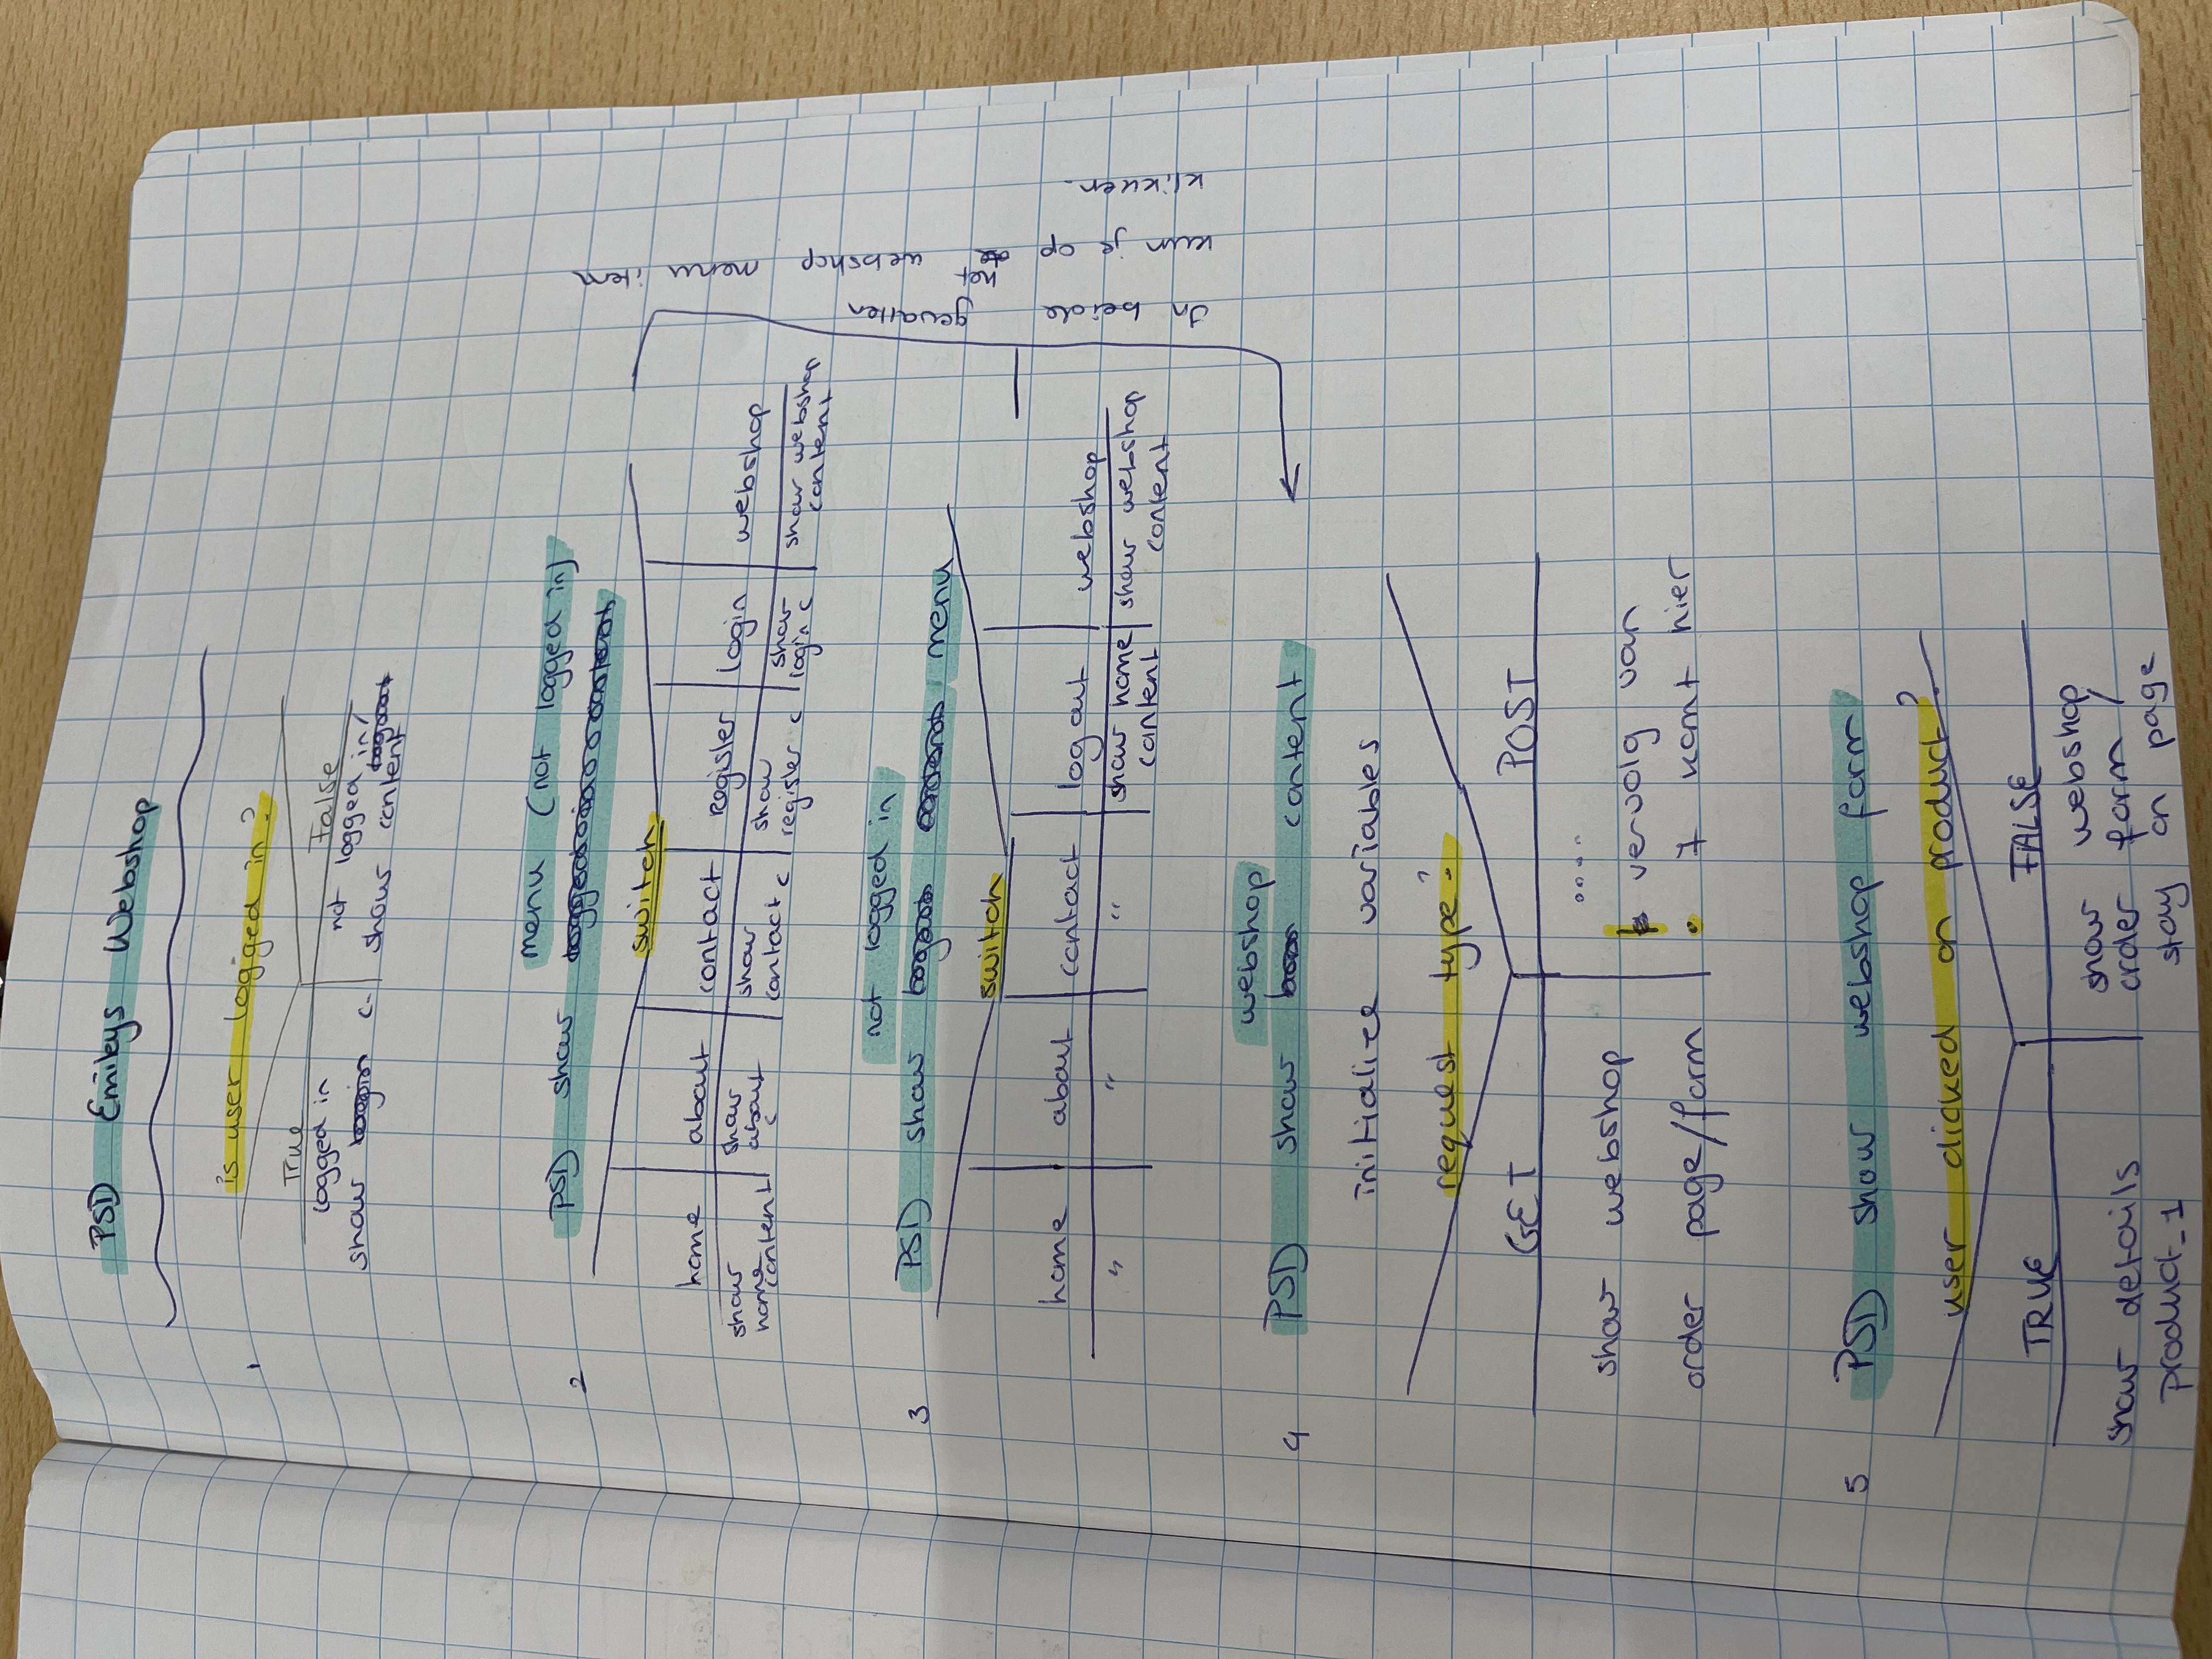 PSD Emileys Webshop
1
is user logged in?
True
False
logged in
not logged in/
show c-
show content
menu (not logged in)
2
PSD show
switch
home about contact Register login webshop
show home content
show about c
show contact c
show register c
show login c
show webshop content
not logged in
3
PSD show menu
switch
home about contact log out webshop
" " "
show home content
show webshop content
In beide gevallen
kun je op het webshop menu item
klikken.
webshop
4
PSD show content
initialize variables
request type?
GET POST
show webshop
order page/form
....
! vervolg van
7 komt hier
5
PSD show webshop form
user clicked on product?
TRUE FALSE
show details
product_1
show webshop
order form /
stay on page